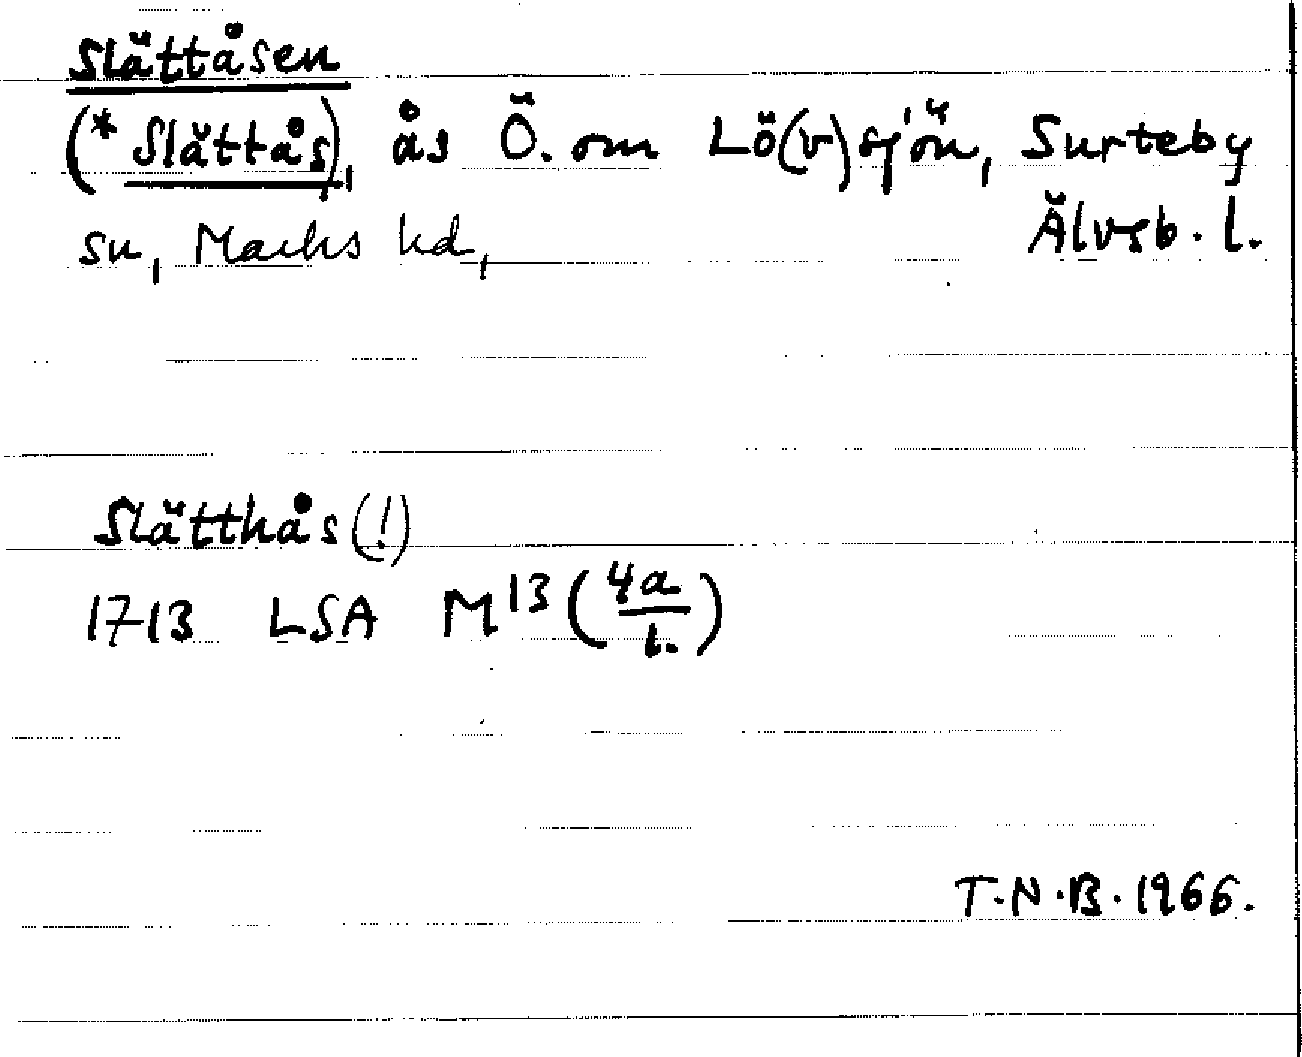 Slättåsen
(* Slättås), ås Ö. om Lö(v)sjön, Surteby
sn, Marks hd, Älvsb. l.
Slätthås (!)
1713 LSA M13 (4a/1.)
T.N.B. 1966.